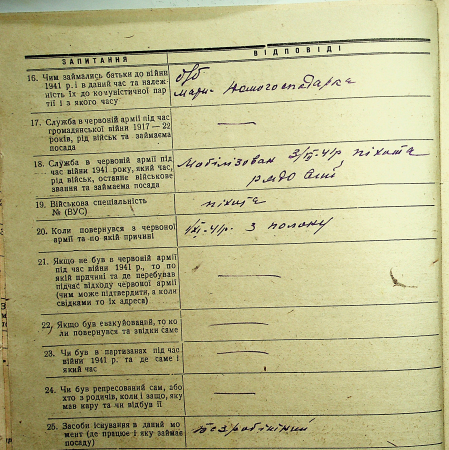 ЗАПИТАННЯ ВІДПОВІДІ
16. Чим займались батьки до війни
1941 р. і в даний час та належ-
ність їх до комуністичної пар-
тії і з якого часу
б/п
мати - домогосподарка
17. Служба в червоній армії під час
громадянської війни 1917—22
років, рід військ та займаєма
посада
—
18. Служба в червоній армії під
час війни 1941 року, який час,
рід військ, останнє військове
звання та займаєма посада
Мобілізован 3/VI-41р піхота
рядовий
19. Військова спеціальність
№ (ВУС)
піхота
20. Коли повернувся з червоної
армії та по якій причині
XI-41р. з полону
21. Якщо не був в червоній армії
під час війни 1941 р., то по
якій причині та де перебував
підчас відходу червоної армії
(чим може підтвердити, а коли
свідками то їх адреса)
—
22. Якщо був евакуйований, то ко-
ли повернувся та звідки саме
—
23. Чи був в партизанах під час
війни 1941 р. та де саме і
який час
—
24. Чи був репресований сам, або
хто з родичів, коли і защо, яку
мав кару та чи відбув її
—
25. Засоби існування в даний мо-
мент (де працює і яку займає
посаду)
безробітний